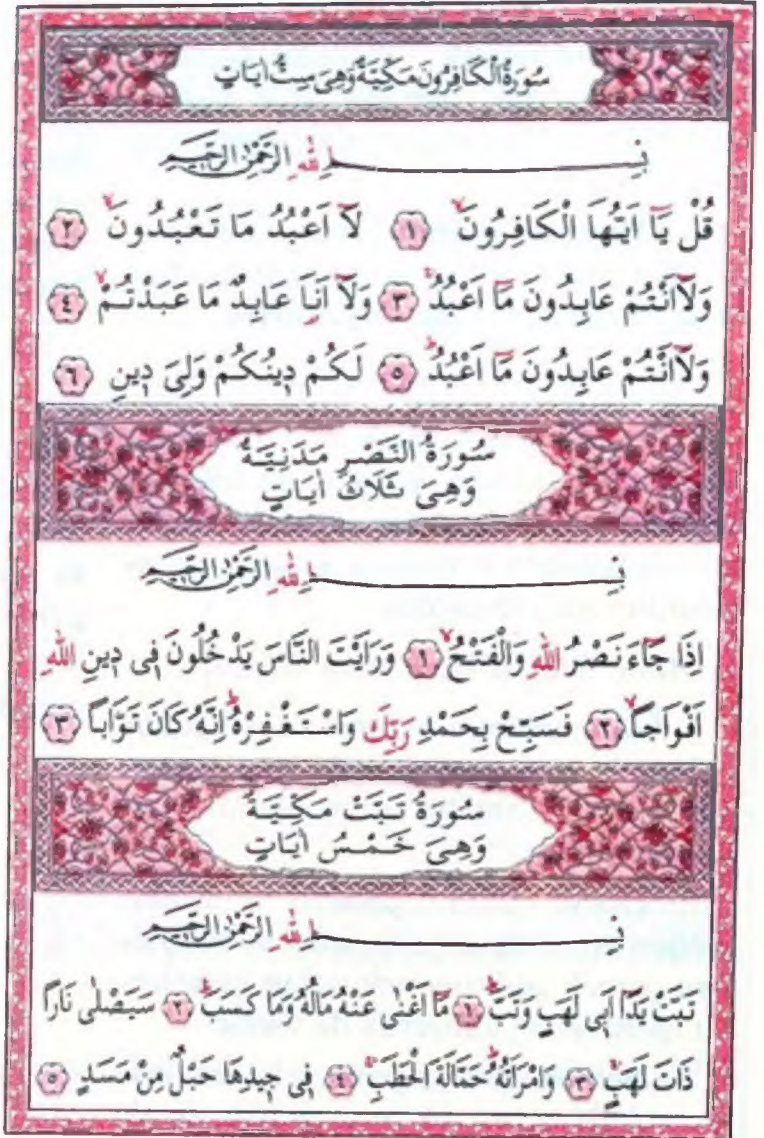 سُورَةُ الْكَافِرُونَ مَكِّيَّةٌ وَهِىَ سِتُّ اٰيَاتٍ
بِسْمِ اللهِ الرَّحْمٰنِ الرَّحِيمِ
قُلْ يَٓا اَيُّهَا الْكَافِرُونَۙ ﴿١﴾ لَٓا اَعْبُدُ مَا تَعْبُدُونَۙ ﴿٢﴾
وَلَٓا اَنْتُمْ عَابِدُونَ مَٓا اَعْبُدُۚ ﴿٣﴾ وَلَٓا اَنَا۬ عَابِدٌ مَا عَبَدْتُمْۙ ﴿٤﴾
وَلَٓا اَنْتُمْ عَابِدُونَ مَٓا اَعْبُدُۜ ﴿٥﴾ لَكُمْ دِينُكُمْ وَلِىَ دِينِ ﴿٦﴾
سُورَةُ النَّصْرِ مَدَنِيَّةٌ
وَهِىَ ثَلَاثُ اٰيَاتٍ
بِسْمِ اللهِ الرَّحْمٰنِ الرَّحِيمِ
اِذَا جَٓاءَ نَصْرُ اللهِ وَالْفَتْحُۙ ﴿١﴾ وَرَاَيْتَ النَّاسَ يَدْخُلُونَ فِى دِينِ اللهِ
اَفْوَاجاًۙ ﴿٢﴾ فَسَبِّحْ بِحَمْدِ رَبِّكَ وَاسْتَغْفِرْهُۜ اِنَّهُ كَانَ تَوَّاباً ﴿٣﴾
سُورَةُ تَبَّتْ مَكِّيَّةٌ
وَهِىَ خَمْسُ اٰيَاتٍ
بِسْمِ اللهِ الرَّحْمٰنِ الرَّحِيمِ
تَبَّتْ يَدَٓا اَبِى لَهَبٍ وَتَبَّۜ ﴿١﴾ مَٓا اَغْنٰى عَنْهُ مَالُهُ وَمَا كَسَبَۜ ﴿٢﴾ سَيَصْلٰى نَاراً
ذَاتَ لَهَبٍۚ ﴿٣﴾ وَامْرَاَتُهُۜ حَمَّالَةَ الْحَطَبِۚ ﴿٤﴾ فِى جِيدِهَا حَبْلٌ مِنْ مَسَدٍ ﴿٥﴾